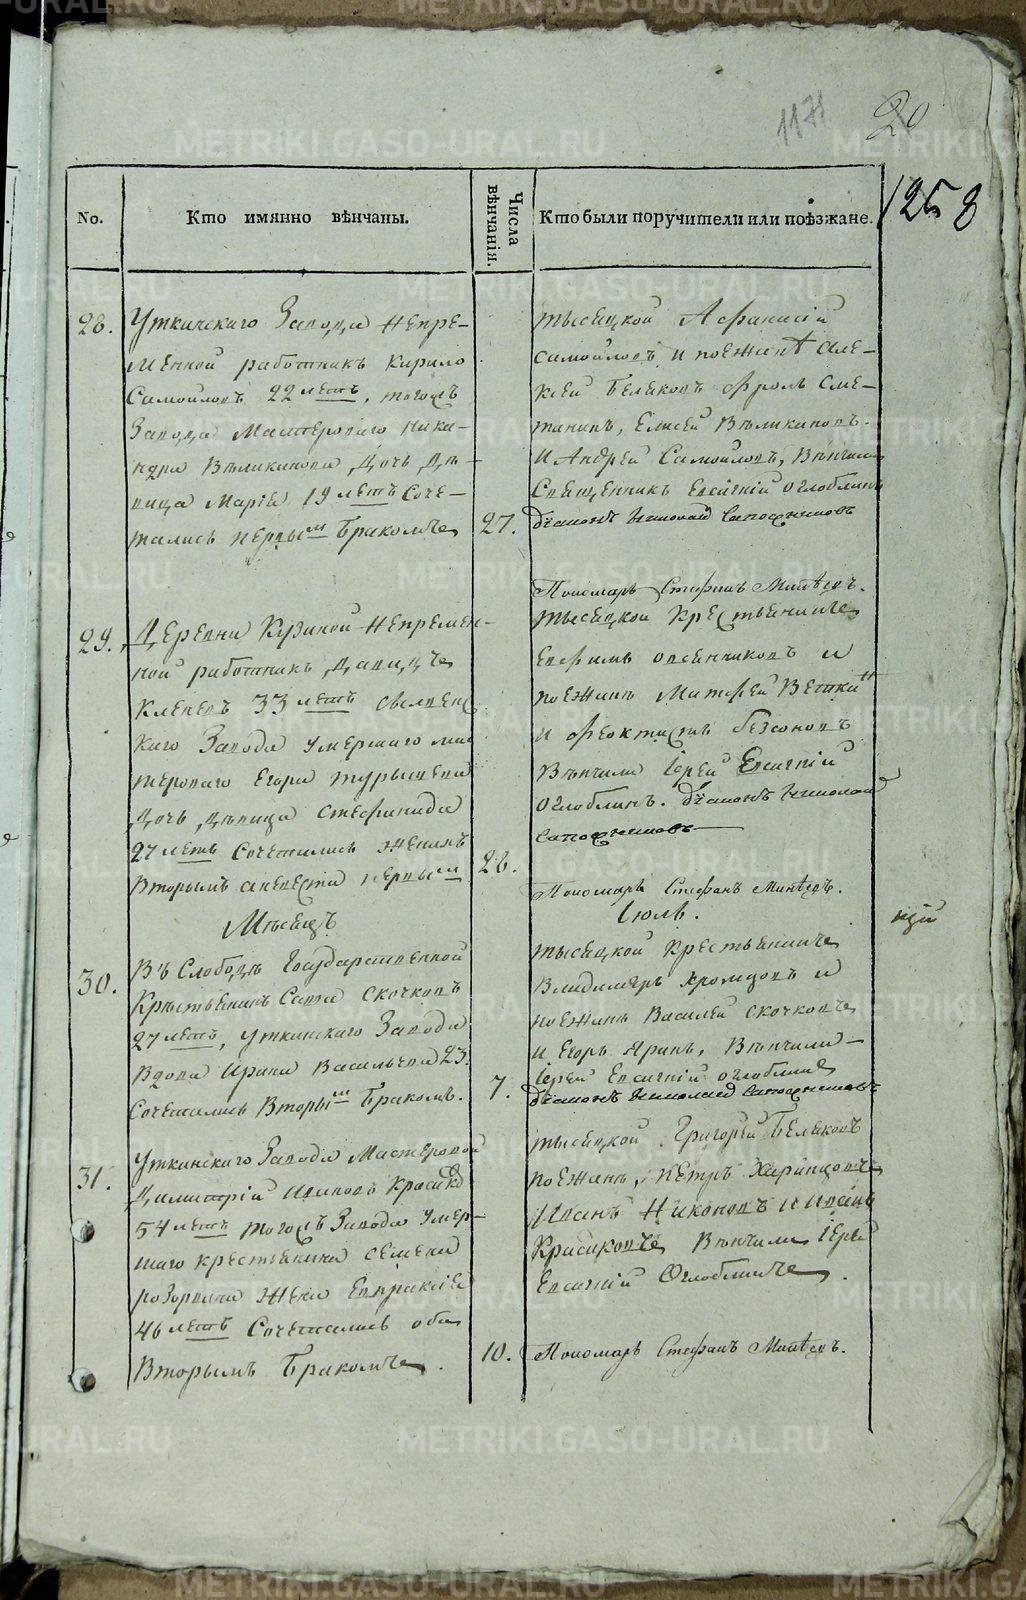 1171
20
1258
No.
Кто имянно вѣнчаны.
Числа вѣнчанія.
Кто были поручители или поѣзжане.
28.
Уткинскаго Завода непре-
менной работникъ Кирило
Самойловъ 22 летъ, тогожъ
Завода Мастероваго Ника-
ндра Вѣликинова Дочь Дѣ-
вица Марія 19 летъ Соче-
тались первымъ Бракомъ
27.
тысяцкой Афанасій
Самойловъ и поезжанѣ Але-
ксей Беляковъ Фролъ Сме-
танинъ, Елисей Вѣликиновъ.
И Андрей Самойловъ, Вѣнчали
Священникъ Евсигній Оглоблинъ
Діаконъ Николай Сапожниковъ
Пономарь Стефанъ Минѣевъ.
29.
Деревни Кузиной непремен-
ной работникъ Давидъ
33 летъ
каго Завода умершаго ма-
стероваго Егора Турышева
Дочь Дѣвица Стефанида
27 летъ Сочетались женихъ
Вторымъ а невеста первымъ
28.
тысяцкой Крестьянинъ
Евфимъ Овсянниковъ и
поезжанѣ Матфей
и Феоктистъ Безсоновъ
Вѣнчали Іерей Евсигній
Оглоблинъ. Діаконъ Николай
Сапожниковъ
Пономарь Стефанъ Минѣевъ.
Мѣсяцъ
Іюль.
30.
Въ Слободѣ Государственной
Крестьянинъ Савва Скочковъ
27 летъ, Уткинскаго Завода
Вдова Ирина Васильева 23.
Сочетались Вторымъ Бракомъ.
7.
тысяцкой Крестьянинъ
Владимеръ Хромцовъ и
поезжанѣ Василей Скочковъ
и Егоръ Яринъ, Вѣнчали
Іерей Евсигній Оглоблинъ
Діаконъ Николай Сапожниковъ
31.
Уткинскаго Завода Мастеровой
Димитрій Ивановъ
54 летъ тогожъ Завода умер-
шаго крестьянина Семена
Розорвина жена Евпраксія
46 летъ Сочетались оба
Вторымъ Бракомъ.
10.
тысяцкой Григорей Беляковъ
поезжанѣ, Петръ Харинцовъ
Иванъ Никоновъ и Иванъ
Красиковъ Вѣнчали Іерей
Евсигній Оглоблинъ.
Пономарь Стефанъ Минѣевъ.
METRIKI.GASO-URAL.RU